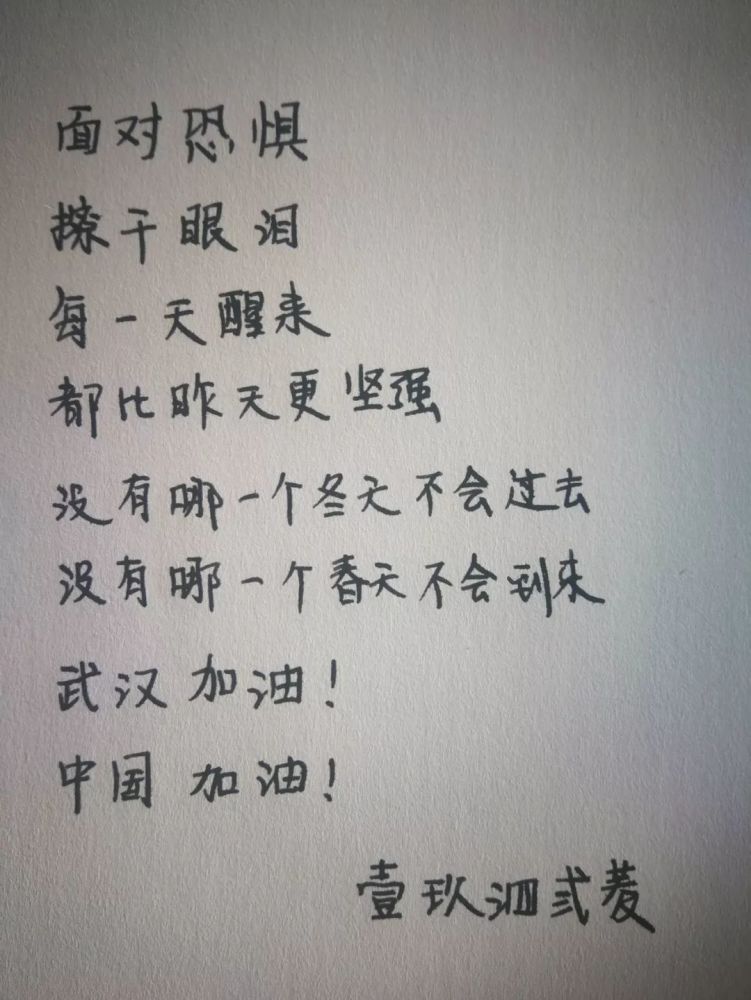 面对恐惧
撩干眼泪
每一天醒来
都比昨天更坚强
没有哪一个冬天不会过去
没有哪一个春天不会到来
武汉加油！
中国 加油！
壹玖泗弍菱